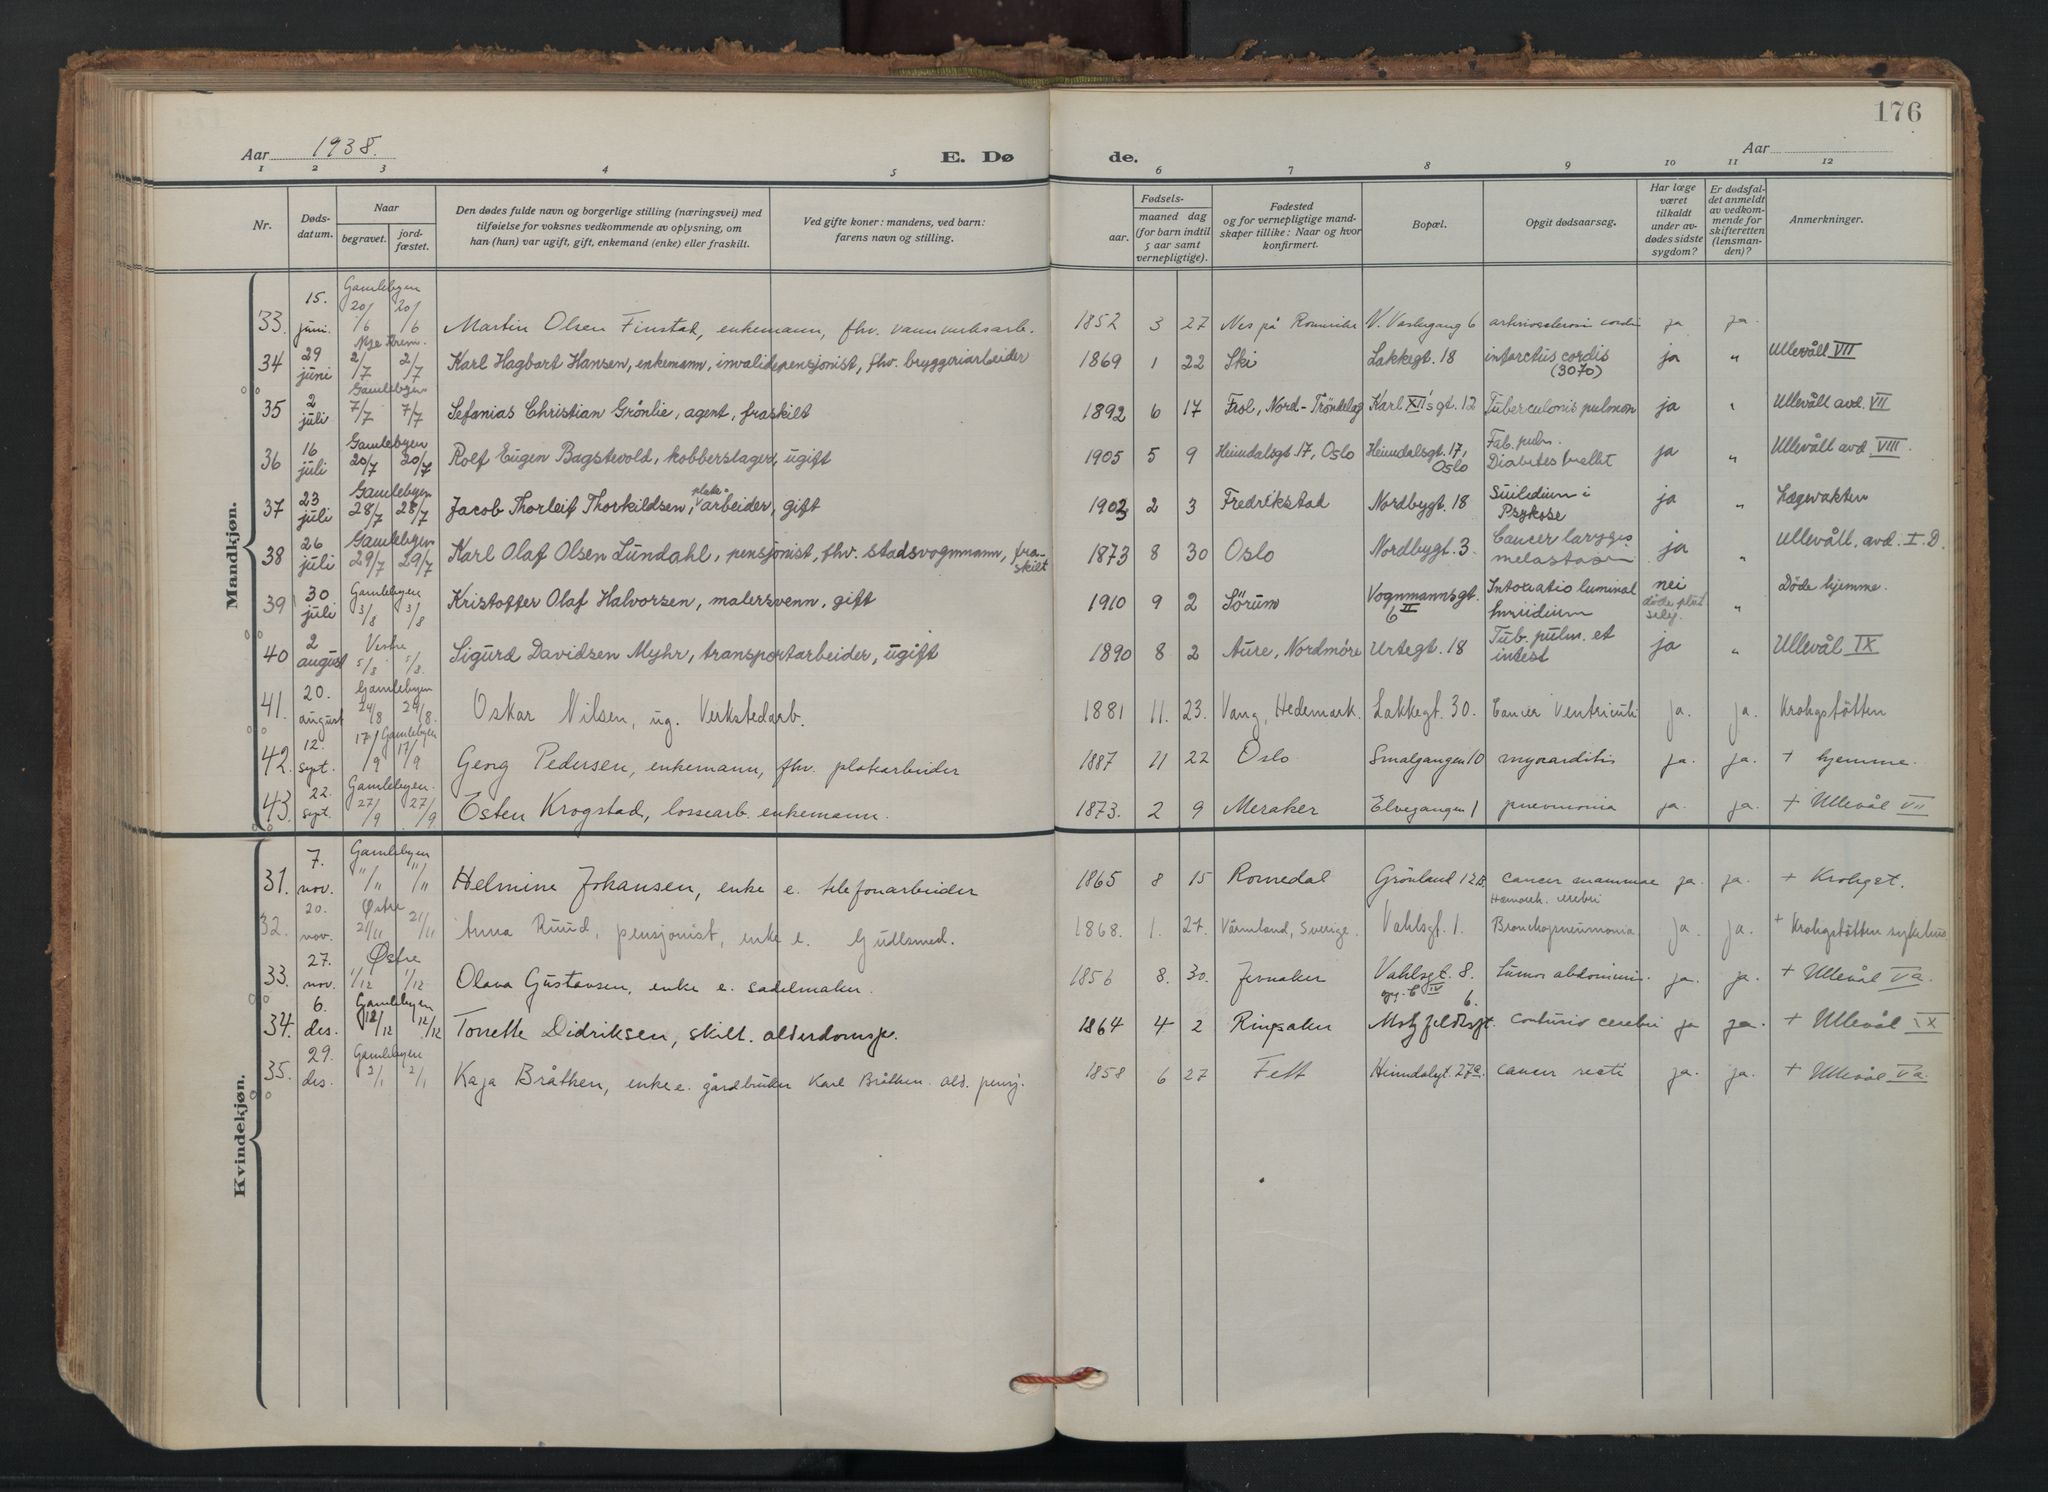 176
Aar 1938.
E. Dø
de.
Aar
1 2 3 4 5 6 7 8 9 10 11 12
Nr.
Døds-
datum.
Naar
begravet.
jord-
fæstet.
Den dødes fulde navn og borgerlige stilling (næringsvei) med
tilføielse for voksnes vedkommende av oplysning, om
han (hun) var ugift, gift, enkemand (enke) eller fraskilt.
Ved gifte koner: mandens, ved barn:
farens navn og stilling.
Fødsels-
aar.
maaned dag
(for barn indtil
5 aar samt
vernepligtige).
Fødested
og for vernepligtige mand-
skaper tillike: Naar og hvor
konfirmert.
Bopæl.
Opgit dødsaarsag.
Har læge
været
tilkaldt
under av-
dødes sidste
sygdom?
Er dødsfal-
det anmeldt
av vedkom-
mende for
skifteretten
(lensman-
den)?
Anmerkninger.
Mandkjøn.
33. 15. juni. Gamlebyen 20/6 20/6 Martin Olsen Finstad, enkemann, fhv. vannverksarb. 1852 3 27 Nes på Romerike V. Vaskegang 6 arteriosclerosis cordis ja ja.
34 29 juni Nye Krem. 2/7 2/7 Karl Hagbart Hansen, enkemann, invalidepensjonist, fhv. bryggeriarbeider 1869 1 22 Ski Lakkegt. 18 infarctus cordis (3070) ja " Ullevåll VII
35 2 juli Gamlebyen 7/7 7/7 Sefanias Christian Grønlie, agent, fraskilt 1892 6 17 Frol, Nord-Trøndelag Karl XII's gt. 12 Tuberculosis pulmon ja " Ullevåll avd. VII
36 16 juli Gamlebyen 20/7 20/7 Rolf Eugen Bagstevold, kobberslager, ugift 1905 5 9 Heimdalsgt. 17, Oslo Heimdalsgt. 17, Oslo pulm. Diabetes mellit ja " Ullevåll avd. VIII.
37 23 juli Gamlebyen 28/7 28/7 Jacob Thorleif Thorkildsen, plate-arbeider, gift 1903 2 3 Fredrikstad Nordbygt. 18 Suicidium i Psykose ja " Lægevakten
38 26 juli Gamlebyen 29/7 29/7 Karl Olaf Olsen Lundahl, pensjonist, fhv. stadsvognmann, fra-skilt 1873 8 30 Oslo Nordbygt. 3. Cancer laryngis metastasin ja " Ullevåll. avd. I. D.
39 30 juli Gamlebyen 3/8 3/8 Kristoffer Olaf Halvorsen, malersvenn, gift 1910 9 2 Sørum Vognmannsgt. 6 II Intoxatio luminal suicidium nei døde plutselig. " Døde hjemme.
40 2 august Vestre 5/8 5/8. Sigurd Davidsen Myhr, transportarbeider, ugift 1890 8 2 Aure, Nordmøre Urtegt. 18 Tub. pulm. et intest ja " Ullevål IX
41. 20. august Gamlebyen 24/8 24/8. Oskar Nilsen, ug. Verkstedarb. 1881 11. 23. Vang, Hedemark. Lakkegt. 30. Cancer Ventriculi ja. ja. Krohgstøtten
42. 12. sept. Gamlebyen 17/9 17/9 Georg Pedersen, enkemann, fhv. platearbeider 1887 11 22 Oslo Smalgangen 10 myocarditis ja. ja. + hjemme.
43. 22. sept. Gamlebyen. 27/9 27/9. Esten Krogstad, lossearb. enkemann. 1873. 2 9 Meraker Elvegangen 1 pneumonia ja. ja. + Ullevål VII
Kvindekjøn.
31. 7. nov. Gamlebyen 11/11 11/11 Helmine Johansen, enke e. telefonarbeider 1865 8 15 Romedal Grønland 12B. cancer mammae Hæmorrh. cerebri ja. ja. + Krohgst.
32. 20. nov. Østre 21/11 21/11 Anna Ruud, pensjonist, enke e. Gullsmed. 1868. 1. 27. Värmland, Sverige. Vahlsgt. 1. Bronchopneumonia ja. ja. + Krohgstøtten sykehus
33. 27. nov. Østre 1/12 1/12 Olava Gustavsen, enke e. sadelmaker. 1856 8. 30. Jevnaker Vahlsgt. 8. opg. C IV tumor abdominis. ja. ja. + Ullevål Va.
34. 6. des. Gamlebyen 12/12 12/12 Tonette Didriksen, skilt. alderdomsp. 1864 4 2 Ringsaker Motzfeldtsgt. 6. contusio cerebri ja ja. + Ullevål IX
35. 29. des. Gamlebyen 2/1 2/1 Kaja Bråthen, enke e. gårdbruker Karl Bråthen. ald. pensj. 1858 6 27 Fett Heimdalsgt. 27a. cancer recti ja. ja. + Ullevål Va.